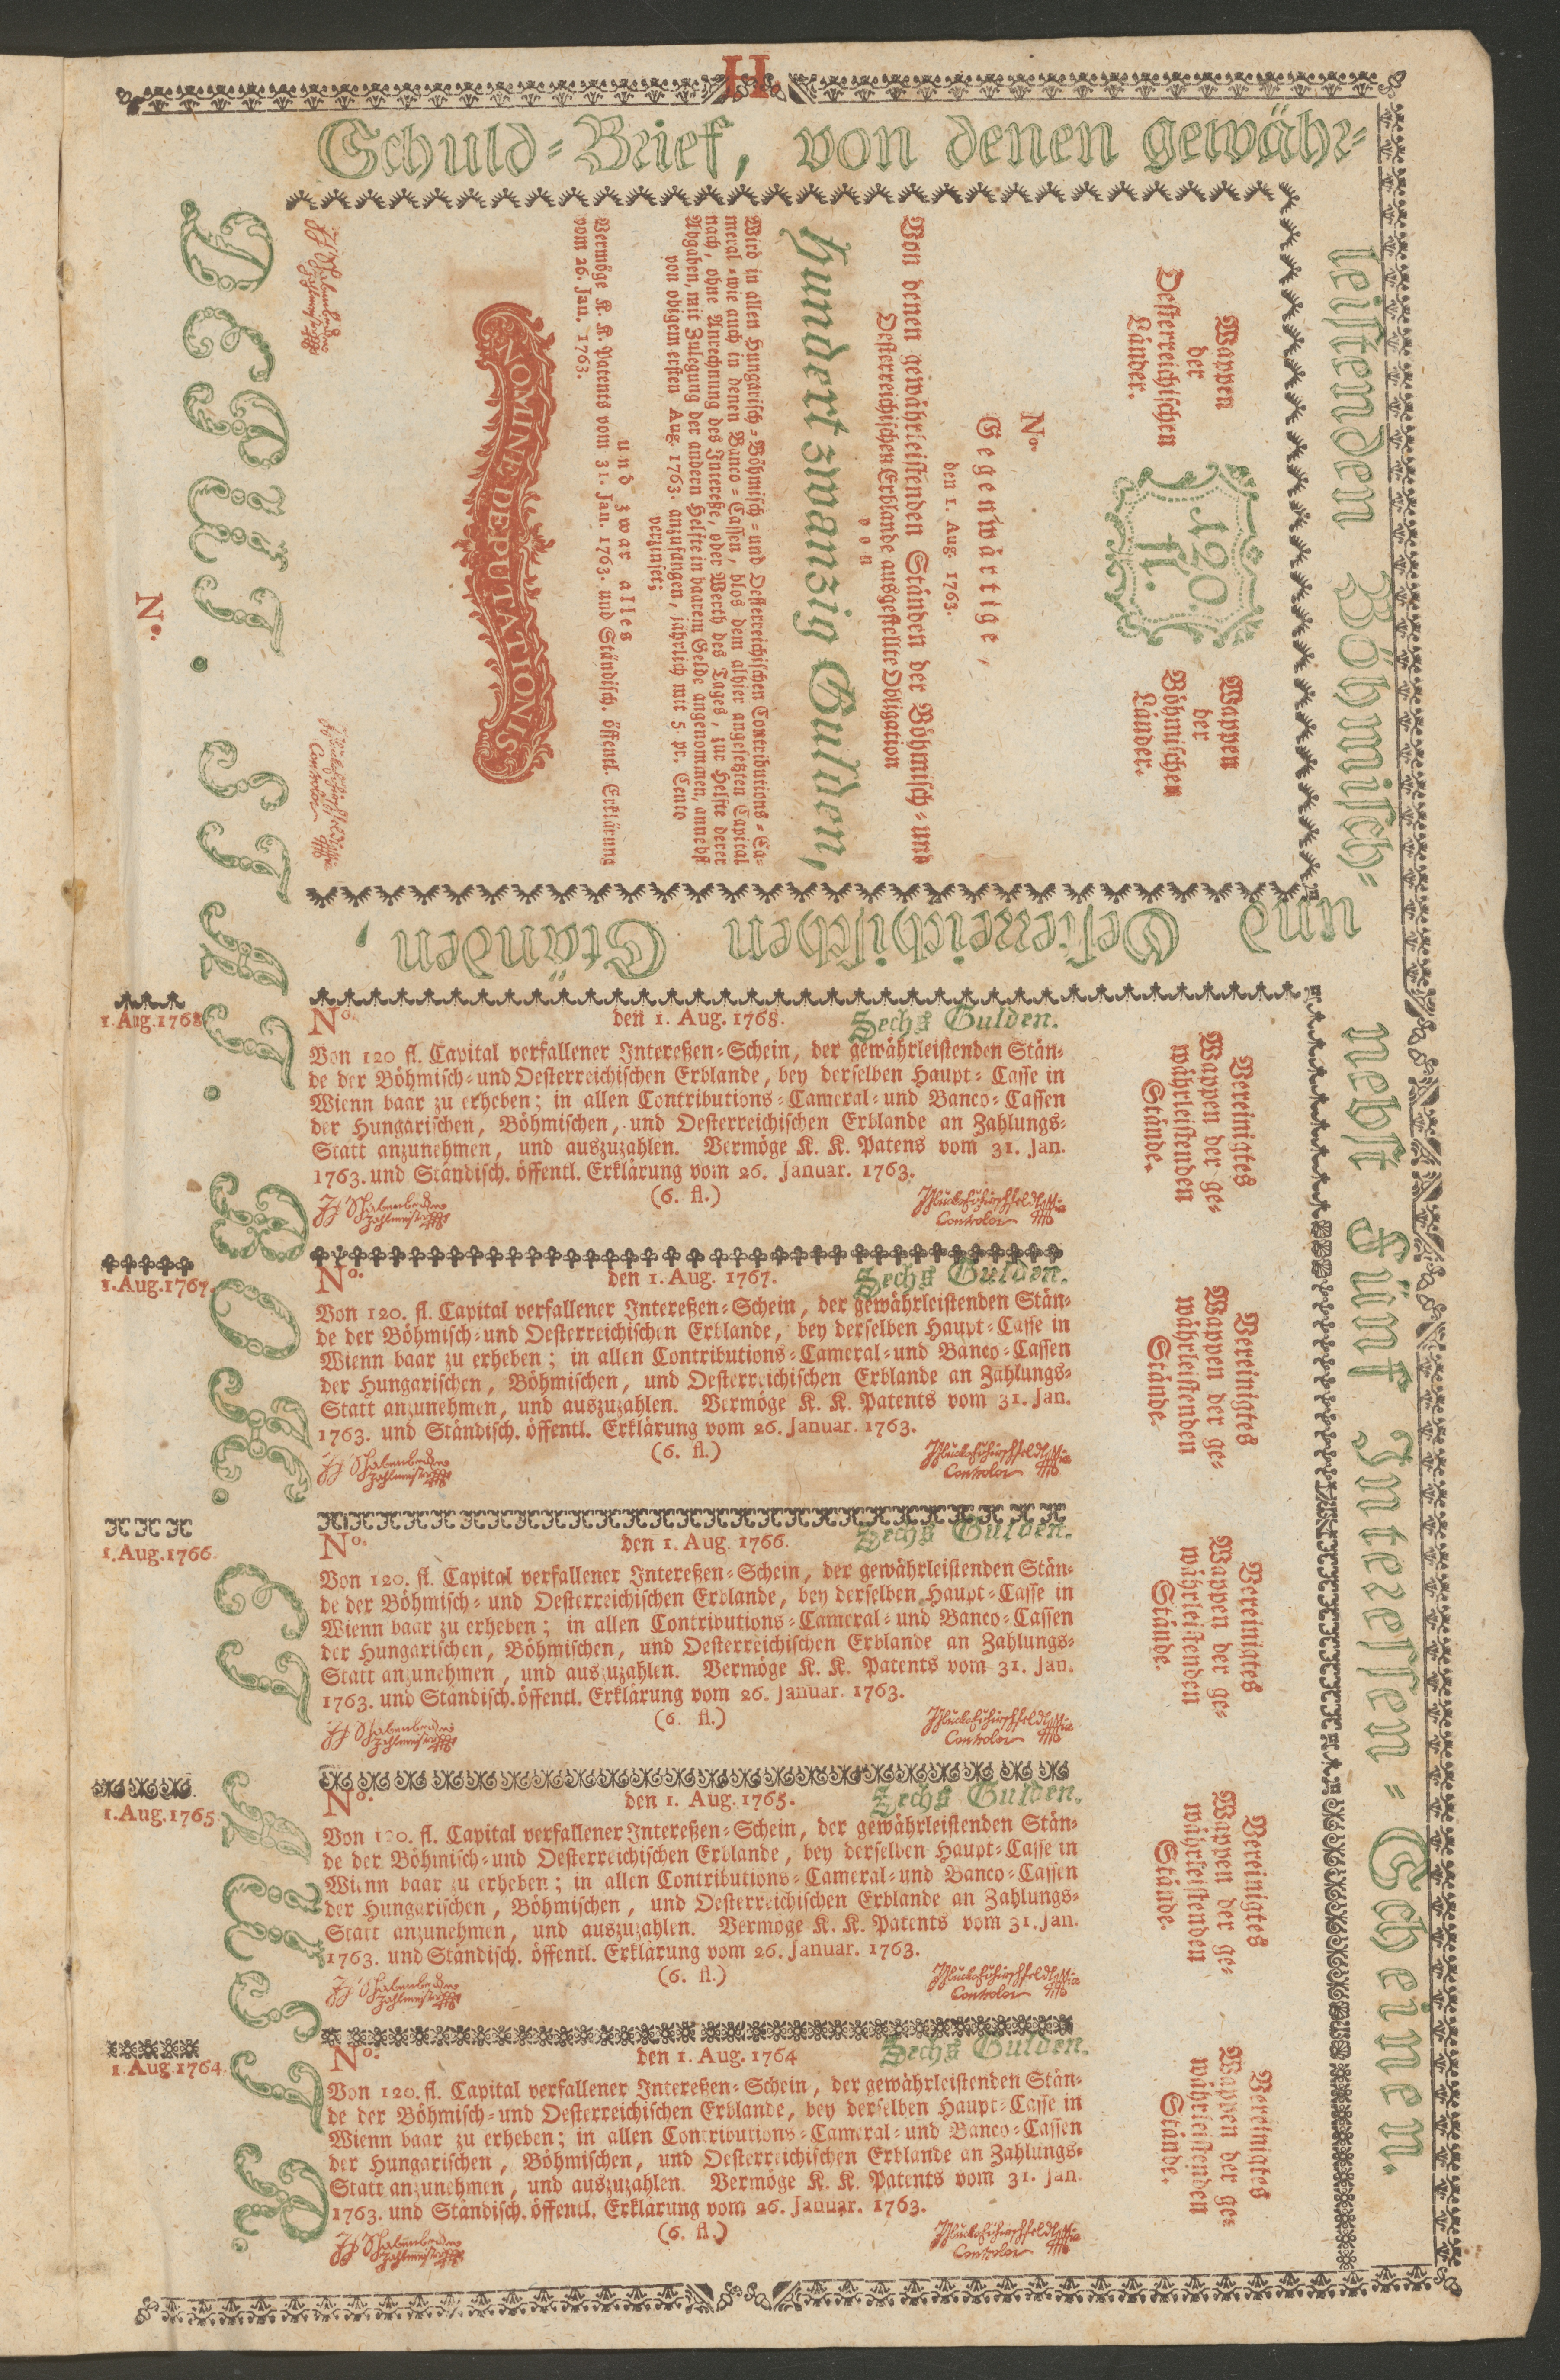 H.
Schuld-Brief, von denen gewähr-
leistenden Böhmisch-
und Oesterreichischen Ständen,
nebst Fünf Interessen-Scheinen.
Wappen
der
Oesterreichischen
Länder.
120.
fl.
Wappen
der
Böhmischen
Länder.
No.
Gegenwärtige,
den 1. Aug. 1763.
Von denen gewährleistenden Ständen der Böhmisch- und
Oesterreichischen Erblande ausgestellte Obligation
von
Hundert zwanzig Gulden,
Wird in allen Hungarisch-Böhmisch- und Oesterreichischen Contributions-Ca-
meral-wie auch in denen Banco-Cassen, blos dem alhier angesetzten Capital
nach, ohne Anrechnung des Intereße, oder Werth des Tages, zur Helfte derer
Abgaben, mit Zulegung der andern Helfte in baarem Gelde angenommen, annebst
von obigem ersten Aug. 1763. anzufangen, jährlich mit 5 pr. Cento
verzinset;
und zwar alles
Vermöge K. K. Patents vom 31. Jan. 1763. und Ständisch. öffentl. Erklärung
vom 26. Jan. 1763.
NOMINE DEPUTATIONIS
Zahlmeister
Controlor
No.
1.Aug.1768
No.
den 1. Aug. 1768.
Sechs Gulden.
Von 120 fl. Capital verfallener Intereßen-Schein, der gewährleistenden Stän-
de der Böhmisch- und Oesterreichischen Erblande, bey derselben Haupt-Casse in
Wienn baar zu erheben; in allen Contributions-Cameral- und Banco-Cassen
der Hungarischen, Böhmischen, und Oesterreichischen Erblande an Zahlungs-
Statt anzunehmen, und auszuzahlen. Vermöge K. K. Patens vom 31. Jan.
1763. und Ständisch. öffentl. Erklärung vom 26. Januar. 1763.
(6. fl.)
Zahlmeister
Controlor
Vereinigtes
Wappen der ge-
währleistenden
Stände.
1.Aug.1767.
No.
den 1. Aug. 1767.
Sechs Gulden.
Von 120. fl. Capital verfallener Intereßen-Schein, der gewährleistenden Stän-
de der Böhmisch- und Oesterreichischen Erblande, bey derselben Haupt-Casse in
Wienn baar zu erheben; in allen Contributions-Cameral- und Banco-Cassen
der Hungarischen, Böhmischen, und Oesterreichischen Erblande an Zahlungs-
Statt anzunehmen, und auszuzahlen. Vermöge K. K. Patents vom 31. Jan.
1763. und Ständisch. öffentl. Erklärung vom 26. Januar. 1763.
(6. fl.)
Zahlmeister
Controlor
Vereinigtes
Wappen der ge-
währleistenden
Stände.
1.Aug.1766
No.
den 1. Aug. 1766.
Sechs Gulden.
Von 120. fl. Capital verfallener Intereßen-Schein, der gewährleistenden Stän-
de der Böhmisch- und Oesterreichischen Erblande, bey derselben Haupt-Casse in
Wienn baar zu erheben; in allen Contributions-Cameral- und Banco-Cassen
der Hungarischen, Böhmischen, und Oesterreichischen Erblande an Zahlungs-
Statt anzunehmen, und auszuzahlen. Vermöge K. K. Patents vom 31. Jan.
1763. und Ständisch. öffentl. Erklärung vom 26. Januar. 1763.
(6. fl.)
Zahlmeister
Controlor
Vereinigtes
Wappen der ge-
währleistenden
Stände.
1.Aug.1765
No.
den 1. Aug. 1765.
Sechs Gulden.
Von 120. fl. Capital verfallener Intereßen-Schein, der gewährleistenden Stän-
de der Böhmisch- und Oesterreichischen Erblande, bey derselben Haupt-Casse in
Wienn baar zu erheben; in allen Contributions-Cameral- und Banco-Cassen
der Hungarischen, Böhmischen, und Oesterreichischen Erblande an Zahlungs-
Statt anzunehmen, und auszuzahlen. Vermöge K. K. Patents vom 31. Jan.
1763. und Ständisch. öffentl. Erklärung vom 26. Januar. 1763.
(6. fl.)
Zahlmeister
Controlor
Vereinigtes
Wappen der ge-
währleistenden
Stände.
1.Aug.1764
No.
den 1. Aug. 1764
Sechs Gulden.
Von 120. fl. Capital verfallener Intereßen-Schein, der gewährleistenden Stän-
de der Böhmisch- und Oesterreichischen Erblande, bey derselben Haupt-Casse in
Wienn baar zu erheben; in allen Contributions-Cameral- und Banco-Cassen
der Hungarischen, Böhmischen, und Oesterreichischen Erblande an Zahlungs-
Statt anzunehmen, und auszuzahlen. Vermöge K. K. Patents vom 31. Jan.
1763. und Ständisch. öffentl. Erklärung vom 26. Januar. 1763.
(6. fl.)
Zahlmeister
Controlor
Vereinigtes
Wappen der ge-
währleistenden
Stände.